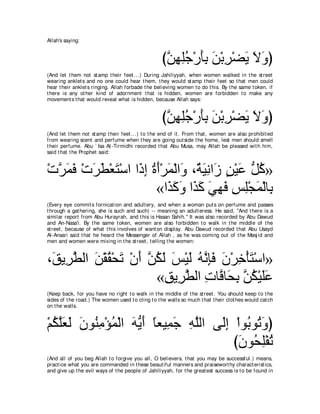 Allah's saying:
(وَلاَ يَضْرِبْنَ بِأَرْجُلِهِنَّ)
(And let them not stamp their feet...) During Jahiliyyah, when women walked in the street
wearing anklets and no one could hear them, they would stamp their feet so that men could
hear their anklets ringing. Allah forbade the believing women to do this. By the same token, if
there is any other kind of adornment that is hidden, women are forbidden to make any
movements that would reveal what is hidden, because Allah says:
(وَلاَ يَضْرِبْنَ بِأَرْجُلِهِنَّ)
(And let them not stamp their feet...) to the end of it. From that, women are also prohibited
from wearing scent and perfume when they are going outside the home, lest men should smell
their perfume. Abu `Isa At-Tirmidhi recorded that Abu Musa, may Allah be pleased with him,
said that the Prophet said:
«كُلُّ عَيْنٍ زَانِيَةٌ، وَالْمَرْأَةُ إِذَا اسْتَعْطَرَتْ فَمَرَّتْ
بِالْمَجْلِسِ فَهِيَ كَذَا وَكَذَا»
(Every eye commits fornication and adultery, and when a woman puts on perfume and passes
through a gathering, she is such and such) -- meaning an adulteress. He said, "And there is a
similar report from Abu Hurayrah, and this is Hasan Sahih." It was also recorded by Abu Dawud
and An-Nasa'i. By the same token, women are also forbidden to walk in the middle of the
street, because of what this involves of wanton display. Abu Dawud recorded that Abu Usayd
Al-Ansari said that he heard the Messenger of Allah , as he was coming out of the Masjid and
men and women were mixing in the street, telling the women:
«اسْتَأْخِرْنَ فَإِنَّهُ لَيْسَ لَكُنَّ أَنْ تَحْقُقْنَ الطَّرِيقَ،
عَلَيْكُنَّ بِحَافَاتِ الطَّرِيقِ»
(Keep back, for you have no right to walk in the middle of the street. You should keep to the
sides of the road.) The women used to cling to the walls so much that their clothes would catch
on the walls.
(وَتُوبُواْ إِلَى اللَّهِ جَمِيعاً أَيُّهَ الْمُؤْمِنُونَ لَعَلَّكُمْ
تُفْلِحُونَ)
(And all of you beg Allah to forgive you all, O believers, that you may be successful) means,
practice what you are commanded in these beautiful manners and praiseworthy characteristics,
and give up the evil ways of the people of Jahiliyyah, for the greatest success is to be found in